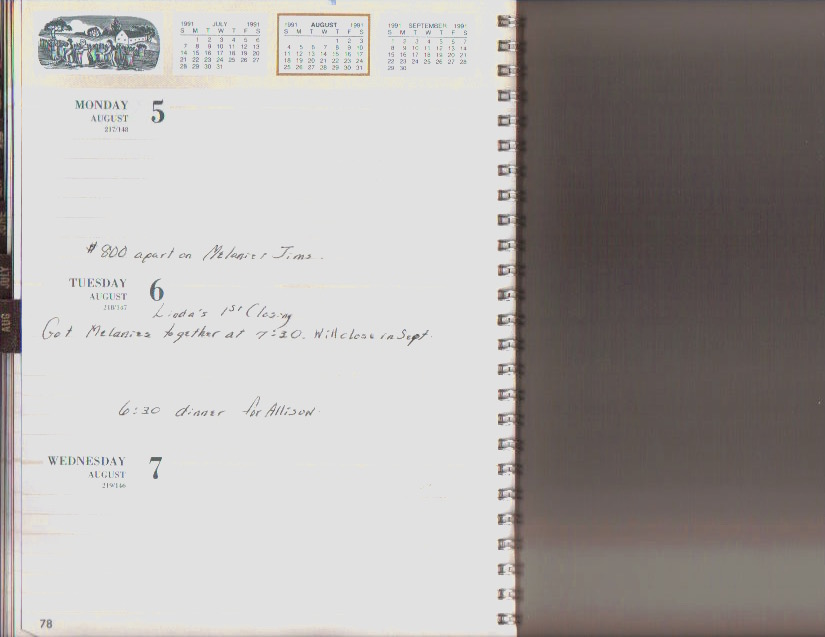 1991 JULY 1991
S M T W T F S
1 2 3 4 5 6
7 8 9 10 11 12 13
14 15 16 17 18 19 20
21 22 23 24 25 26 27
28 29 30 31
1991 AUGUST 1991
S M T W T F S
1 2 3
4 5 6 7 8 9 10
11 12 13 14 15 16 17
18 19 20 21 22 23 24
25 26 27 28 29 30 31
1991 SEPTEMBER 1991
S M T W T F S
1 2 3 4 5 6 7
8 9 10 11 12 13 14
15 16 17 18 19 20 21
22 23 24 25 26 27 28
29 30
MONDAY 5
AUGUST
217/148
$800 apart on Melanies Jims.
TUESDAY 6
AUGUST
218/147
Linda's 1st Closing
Got Melanies together at 7:30. Will close in Sept.
6:30 dinner for Allison
WEDNESDAY 7
AUGUST
219/146
78
JUNE
JULY
AUG